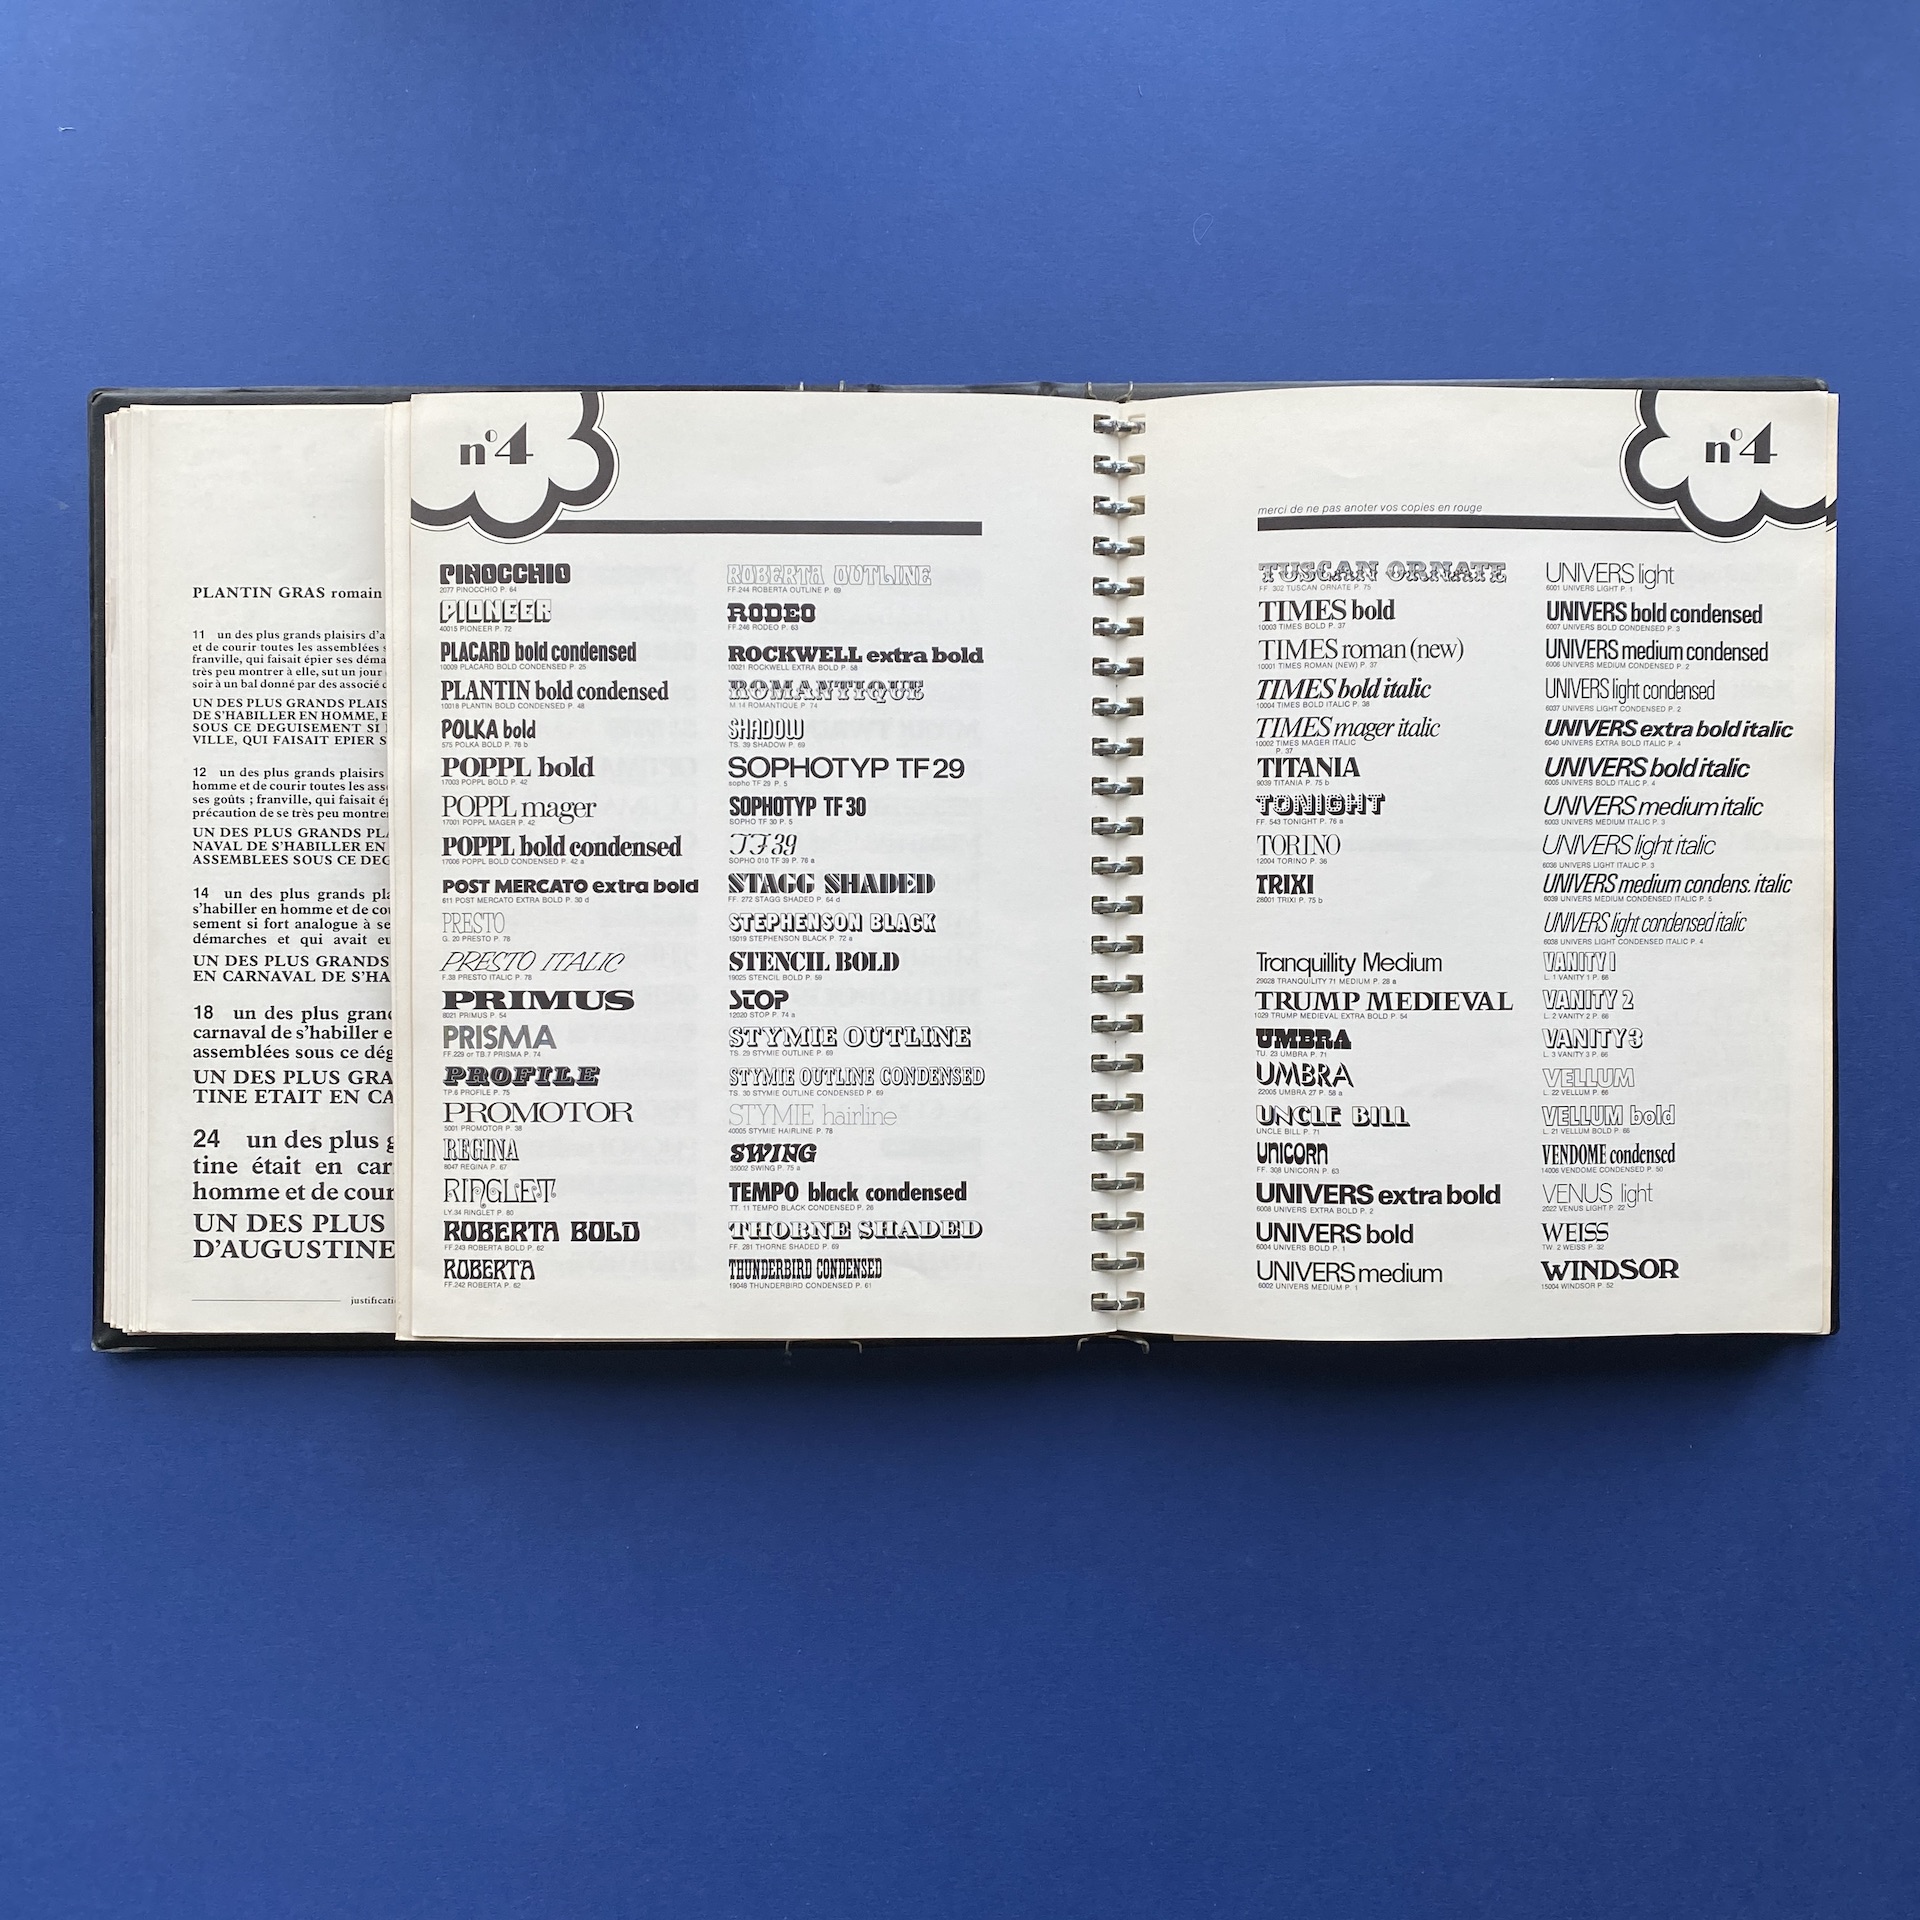 PLANTIN GRAS romain
11 un des plus grands plaisirs d'a
et de courir toutes les assemblées s
franville, qui faisait épier ses déma
très peu montrer à elle, sut un jour
soir à un bal donné par des associé d
UN DES PLUS GRANDS PLAIS
DE S'HABILLER EN HOMME, E
SOUS CE DEGUISEMENT SI
VILLE, QUI FAISAIT EPIER S
12 un des plus grands plaisirs
homme et de courir toutes les asse
ses goûts ; franville, qui faisait ép
précaution de se très peu montrer
UN DES PLUS GRANDS PLA
NAVAL DE S'HABILLER EN
ASSEMBLEES SOUS CE DEG
14 un des plus grands pla
s'habiller en homme et de cou
sement si fort analogue à se
démarches et qui avait eu
UN DES PLUS GRANDS
EN CARNAVAL DE S'HA
18 un des plus grand
carnaval de s'habiller e
assemblées sous ce dég
UN DES PLUS GRA
TINE ETAIT EN CA
24 un des plus g
tine était en car
homme et de cour
UN DES PLUS
D'AUGUSTINE
justificati
n°4
PINOCCHIO
2077 PINOCCHIO P. 64
PIONEER
40015 PIONEER P. 72
PLACARD bold condensed
10009 PLACARD BOLD CONDENSED P. 25
PLANTIN bold condensed
10018 PLANTIN BOLD CONDENSED P. 48
POLKA bold
575 POLKA BOLD P. 78 b
POPPL bold
17003 POPPL BOLD P. 42
POPPL mager
17001 POPPL MAGER P. 42
POPPL bold condensed
17006 POPPL BOLD CONDENSED P. 42 a
POST MERCATO extra bold
611 POST MERCATO EXTRA BOLD P. 30 d
PRESTO
G. 20 PRESTO P. 78
PRESTO ITALIC
F.38 PRESTO ITALIC P. 78
PRIMUS
8021 PRIMUS P. 54
PRISMA
FF.229 or TB.7 PRISMA P. 74
PROFILE
TP.6 PROFILE P. 75
PROMOTOR
5001 PROMOTOR P. 38
REGINA
8047 REGINA P. 67
RINGLET
LY.34 RINGLET P. 80
ROBERTA BOLD
FF.243 ROBERTA BOLD P. 62
ROBERTA
FF.242 ROBERTA P. 62
ROBERTA OUTLINE
FF.244 ROBERTA OUTLINE P. 69
RODEO
FF.246 RODEO P. 63
ROCKWELL extra bold
10021 ROCKWELL EXTRA BOLD P. 58
ROMANTIQUE
M.14 ROMANTIQUE P. 74
SHADOW
TS. 39 SHADOW P. 69
SOPHOTYP TF 29
sopho TF 29 P. 5
SOPHOTYP TF 30
SOPHO TF 30 P. 5
TF 39
SOPHO 010 TF 39 P. 76 a
STAGG SHADED
FF. 272 STAGG SHADED P. 64 d
STEPHENSON BLACK
15019 STEPHENSON BLACK P. 72 a
STENCIL BOLD
19025 STENCIL BOLD P. 59
STOP
12020 STOP P. 74 a
STYMIE OUTLINE
TS. 29 STYMIE OUTLINE P. 69
STYMIE OUTLINE CONDENSED
TS. 30 STYMIE OUTLINE CONDENSED P. 69
STYMIE hairline
40005 STYMIE HAIRLINE P. 78
SWING
35002 SWING P. 75 a
TEMPO black condensed
TT. 11 TEMPO BLACK CONDENSED P. 26
THORNE SHADED
FF. 281 THORNE SHADED P. 69
THUNDERBIRD CONDENSED
19048 THUNDERBIRD CONDENSED P. 61
n°4
merci de ne pas anoter vos copies en rouge
TUSCAN ORNATE
FF. 302 TUSCAN ORNATE P. 75
TIMES bold
10003 TIMES BOLD P. 37
TIMES roman (new)
10001 TIMES ROMAN (NEW) P. 37
TIMES bold italic
10004 TIMES BOLD ITALIC P. 38
TIMES mager italic
10002 TIMES MAGER ITALIC
P. 37
TITANIA
9039 TITANIA P. 75 b
TONIGHT
FF. 543 TONIGHT P. 76 a
TORINO
12004 TORINO P. 36
TRIXI
28001 TRIXI P. 75 b
Tranquillity Medium
29028 TRANQUILITY 71 MEDIUM P. 28 a
TRUMP MEDIEVAL
1029 TRUMP MEDIEVAL EXTRA BOLD P. 54
UMBRA
TU. 23 UMBRA P. 71
UMBRA
22005 UMBRA 27 P. 58 a
UNCLE BILL
UNCLE BILL P. 71
UNICORN
FF. 308 UNICORN P. 63
UNIVERS extra bold
6008 UNIVERS EXTRA BOLD P. 2
UNIVERS bold
6004 UNIVERS BOLD P. 1
UNIVERS medium
6002 UNIVERS MEDIUM P. 1
UNIVERS light
6001 UNIVERS LIGHT P. 1
UNIVERS bold condensed
6007 UNIVERS BOLD CONDENSED P. 3
UNIVERS medium condensed
6006 UNIVERS MEDIUM CONDENSED P. 2
UNIVERS light condensed
6037 UNIVERS LIGHT CONDENSED P. 2
UNIVERS extra bold italic
6040 UNIVERS EXTRA BOLD ITALIC P. 4
UNIVERS bold italic
6005 UNIVERS BOLD ITALIC P. 4
UNIVERS medium italic
6003 UNIVERS MEDIUM ITALIC P. 3
UNIVERS light italic
6036 UNIVERS LIGHT ITALIC P. 3
UNIVERS medium condens. italic
6039 UNIVERS MEDIUM CONDENSED ITALIC P. 5
UNIVERS light condensed italic
6038 UNIVERS LIGHT CONDENSED ITALIC P. 4
VANITY 1
L. 1 VANITY 1 P. 66
VANITY 2
L. 2 VANITY 2 P. 66
VANITY 3
L. 3 VANITY 3 P. 66
VELLUM
L. 22 VELLUM P. 66
VELLUM bold
L. 21 VELLUM BOLD P. 66
VENDOME condensed
14006 VENDOME CONDENSED P. 50
VENUS light
2022 VENUS LIGHT P. 22
WEISS
TW. 2 WEISS P. 32
WINDSOR
15004 WINDSOR P. 52